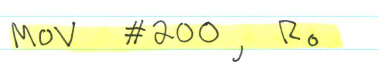 MOV #200, R0